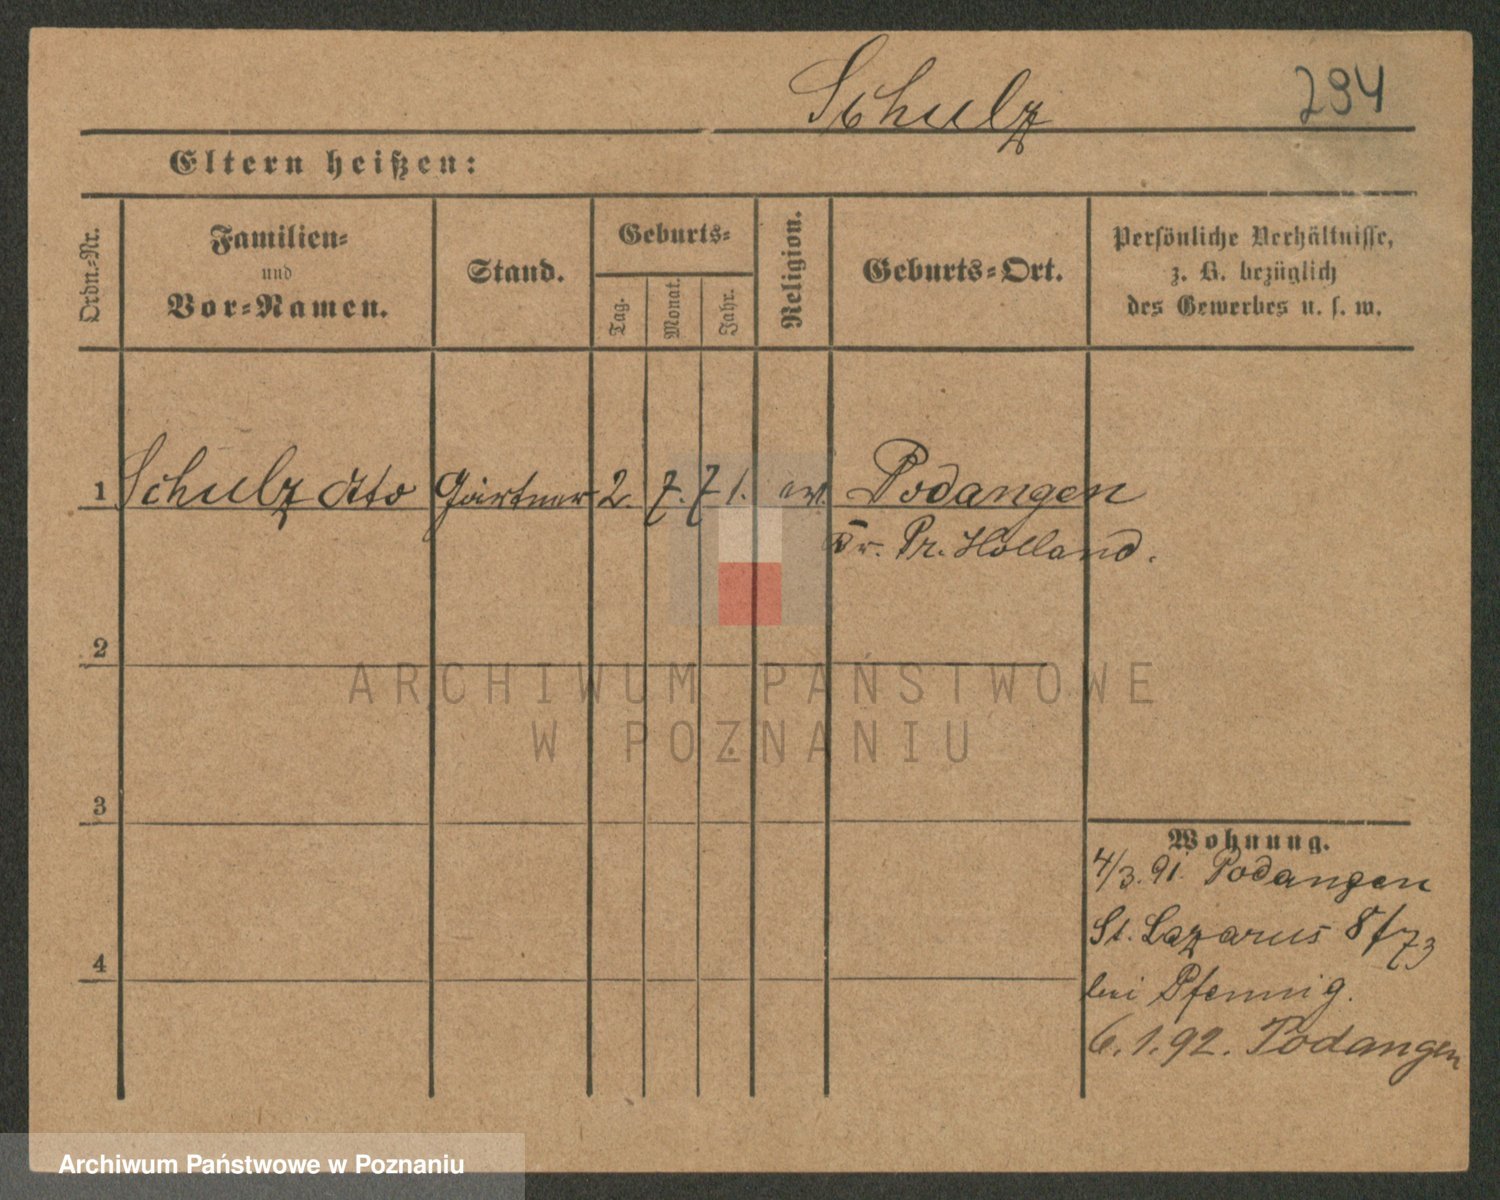 Schulz 294
Eltern heißen:
Ordn.-Nr.
Familien-
und
Vor-Namen.
Stand.
Geburts-
Tag.
Monat.
Jahr.
Religion.
Geburts-Ort.
Persönliche Verhältnisse,
z. B. bezüglich
des Gewerbes u. s. w.
1 Schulz Otto Gärtner 2. 7. 71. ev. Podangen
Kr. Pr. Holland.
2
3
4
Wohnung.
4/3. 91. Podangen
St. Lazarus 8/73
bei Pfennig.
6. 1. 92. Podangen
ARCHIWUM PAŃSTWOWE
W POZNANIU
Archiwum Państwowe w Poznaniu